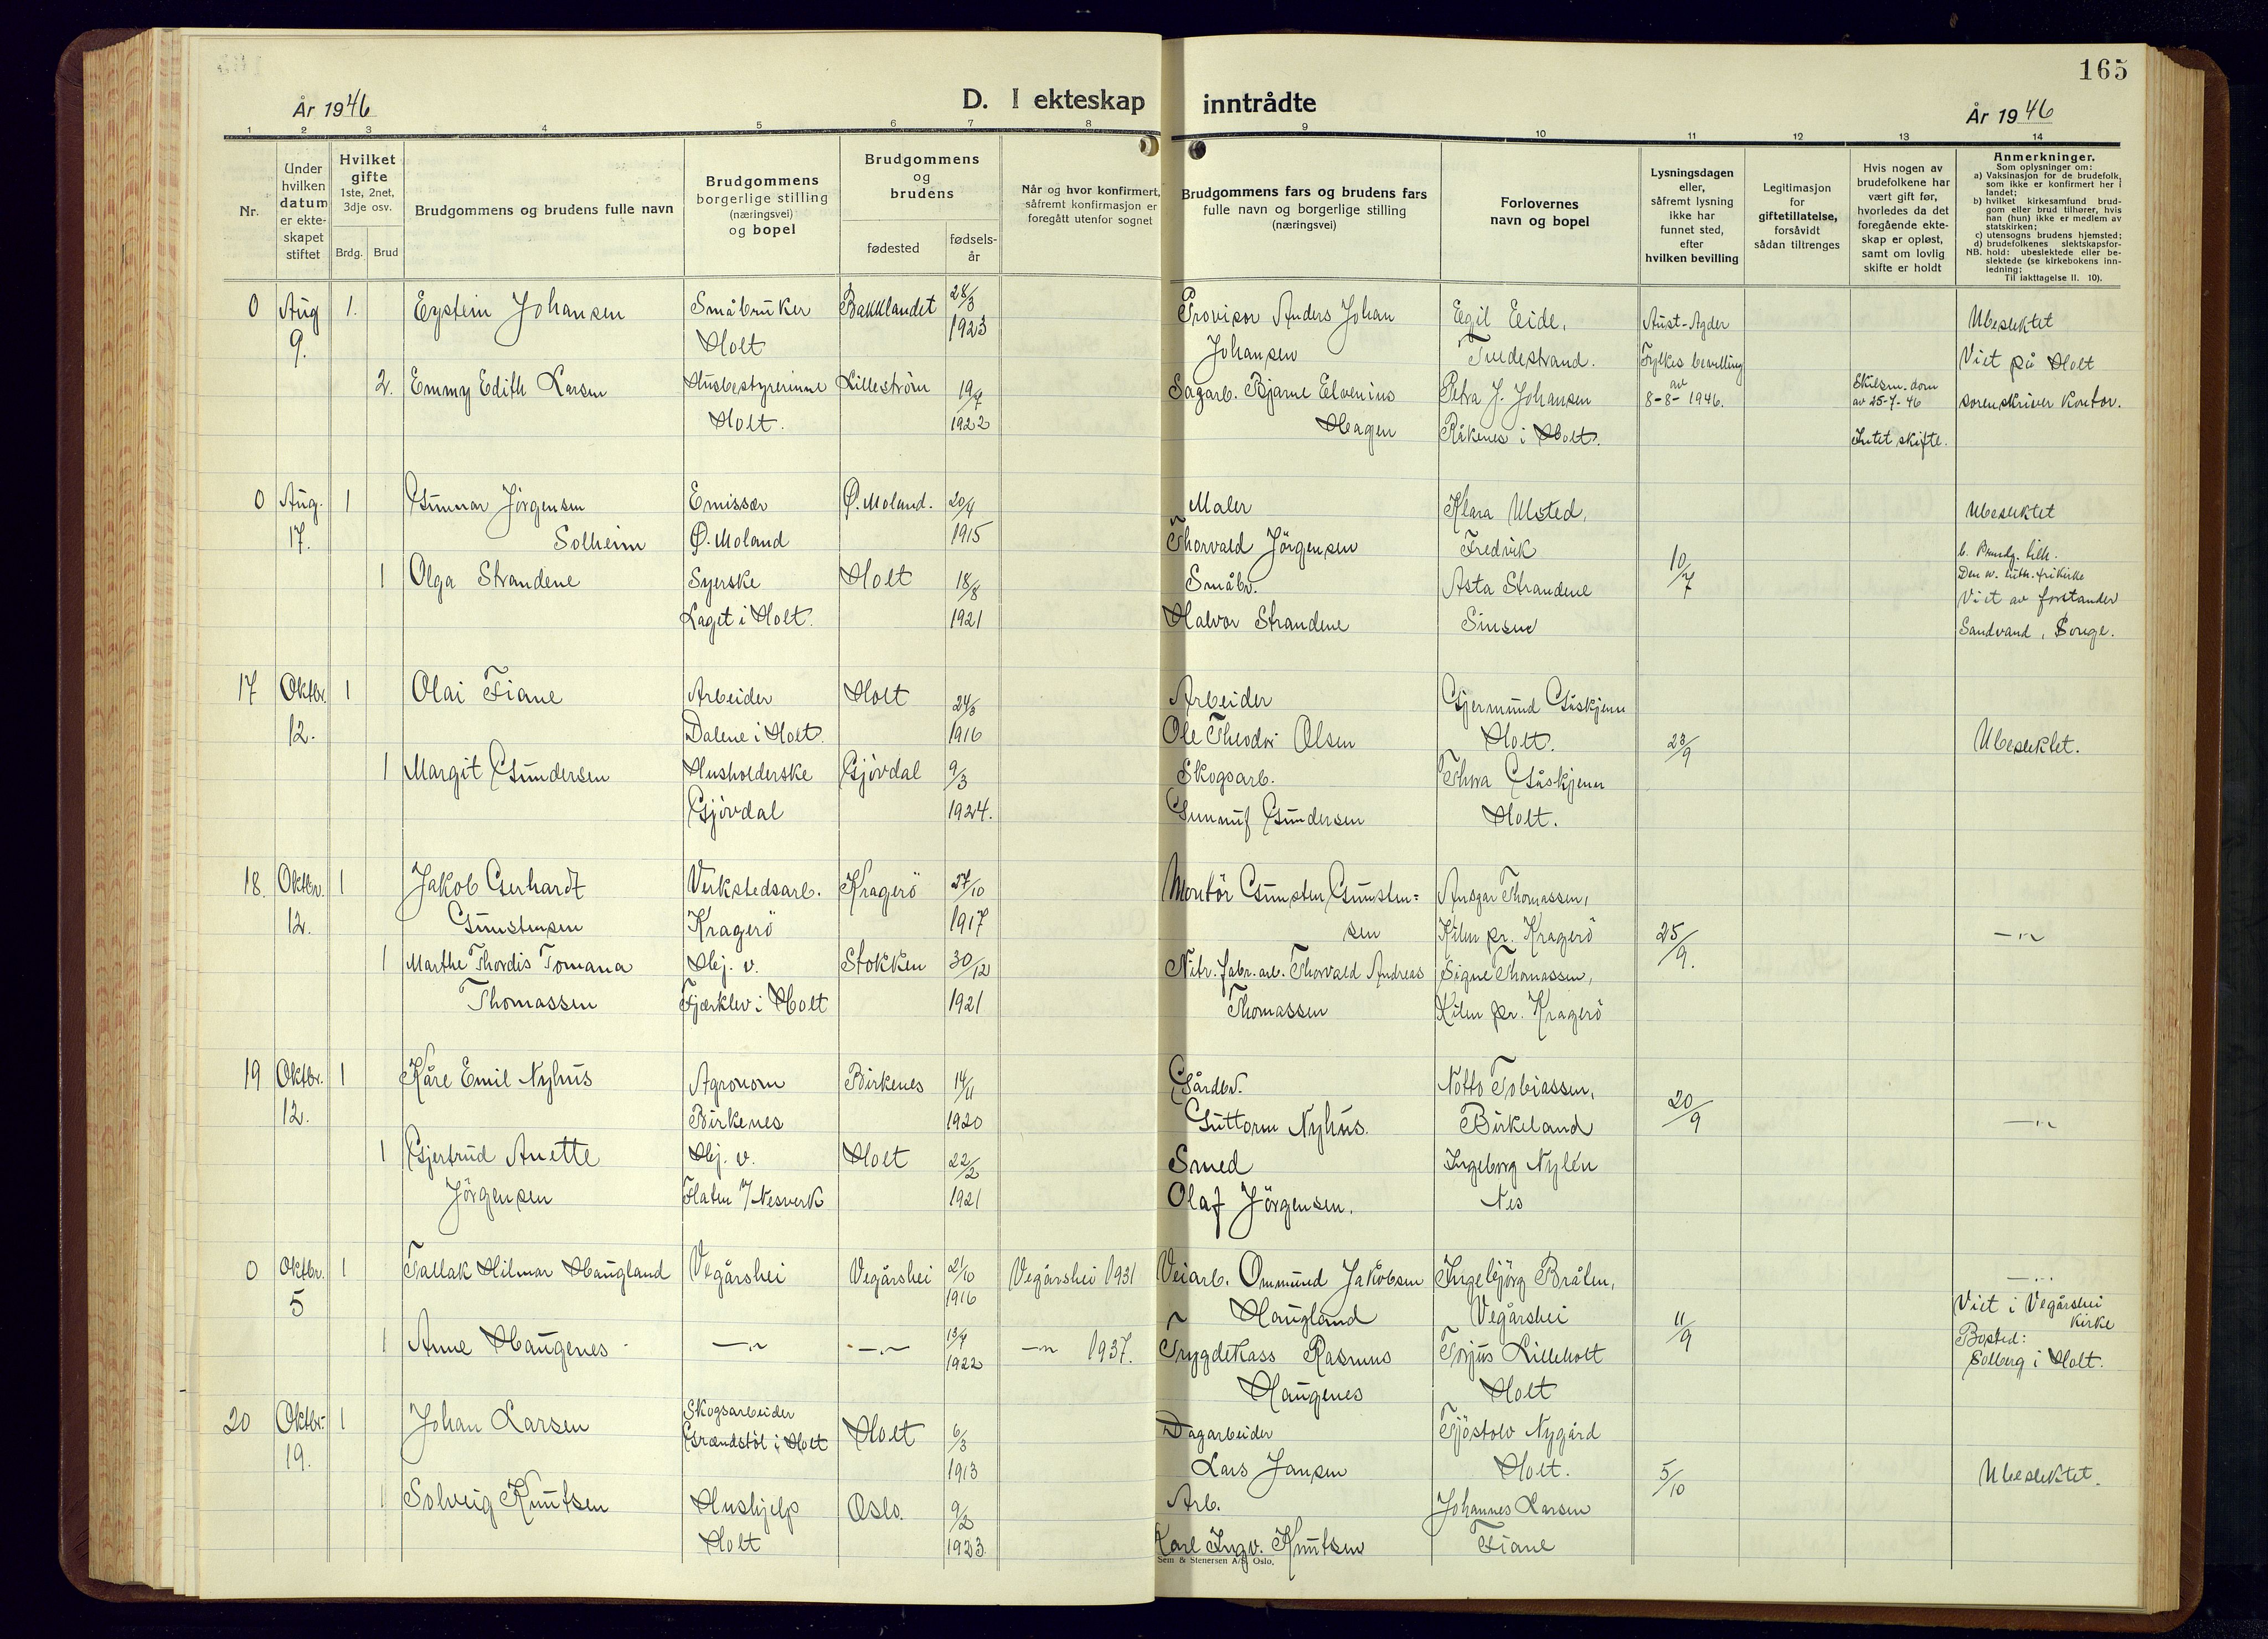 165
År 1946
D. I ekteskap inntrådte
År 1946
1 2 3 4 5 6 7 8 9 10 11 12 13 14
Nr.
Under
hvilken
datum
er ekte-
skapet
stiftet
Hvilket
gifte
1ste, 2net,
3dje osv.
Brdg. Brud
Brudgommens og brudens fulle navn
Brudgommens
borgerlige stilling
(næringsvei)
og bopel
Brudgommens
og
brudens
fødested
fødsels-
år
Når og hvor konfirmert,
såfremt konfirmasjon er
foregått utenfor sognet
Brudgommens fars og brudens fars
fulle navn og borgerlige stilling
(næringsvei)
Forlovernes
navn og bopel
Lysningsdagen
eller,
såfremt lysning
ikke har
funnet sted,
efter
hvilken bevilling
Legitimasjon
for
giftetillatelse,
forsåvidt
sådan tiltrenges
Hvis nogen av
brudefolkene har
vært gift før,
hvorledes da det
foregående ekte-
skap er opløst,
samt om lovlig
skifte er holdt
Anmerkninger.
Som oplysninger om:
a) Vaksinasjon for de brudefolk,
som ikke er konfirmert her i
landet;
b) hvilket kirkesamfund brud-
gom eller brud tilhører, hvis
han (hun) ikke er medlem av
statskirken;
c) utensogns brudens hjemsted;
d) brudefolkenes slektskapsfor-
hold: ubeslektede eller be-
slektede (se kirkebokens inn-
ledning;
NB. Til iakttagelse II. 10).
0 Aug 1. Eystein Johansen Småbruker Bakklandet 28/3 Provisor Anders Johan Egil Eide, Aust-Agder Ubeslektet
9. Holt 1923 Johansen Tvedestrand. Fylkes bevilling Viet på Holt
2. Emmy Edith Larsen Husbestyrerinne Lilleström 19/7 Sagarb. Bjarne Elvenius Petra J. Johansen av 8-8-1946. Skilsm. dom av 25-7-46 sorenskriver kontor.
Holt. 1922 Hagen Råkenes i Holt. Intet skifte.
0 Aug. 1 Gunnar Jörgensen Emissær Ø. Moland. 20/4 Maler Klara Ulsted, Ubeslektet
17. Solheim Ø. Moland 1915 Thorvald Jörgensen Fredvik 10/7 b. Brudg. tilh.
1 Olga Strandene Syerske Holt 18/8 Småbr. Asta Strandene Den ev. luth. frikirke
Viet av forstander
Laget i Holt. 1921 Halvor Strandene Sandvand, Songe.
17 Oktbr. 1 Olai Fiane Arbeider Holt 24/3 Arbeider Gjermund Gåskjenn
12. Dalene i Holt. 1916 Ole Theodor Olsen Holt. 23/9 Ubeslektet.
1 Margit Gundersen Husholderske Gjövdal 9/3 Skogsarb. Thora Gåskjenn
Gjövdal 1924. Gunnuf Gundersen Holt.
18. Oktbr. 1 Jakob Gerhardt Verkstedsarb. Kragerö 27/10 Montör Gunsten Gunsten= Ansgar Thomassen,
12. Gunstensen Kragerö 1917 sen Kilen pr. Kragerö 25/9. —"—
1 Marthe Thordis Tomana Hej. v. Stokken 30/12 Nitr. fabr. arb. Thorvald Andreas Signe Thomassen,
Thomassen Fjærklev i Holt 1921 Thomassen Kilen pr. Kragerö
19 Oktbr. 1 Kåre Emil Nyhus Agronom Birkenes 14/11 Gårdbr. Notto Tobiassen,
12. Birkenes 1920 Guttorm Nyhus. Birkeland 20/9 —"—
1 Gjertrud Anette Hej. v. Holt 22/2 Smed Ingeborg Nylén
Jörgensen Flaten v/ Nesverk 1921 Olaf Jörgensen. Nes
0 Oktbr. 1 Tallak Hilmar Haugland Vegårshei Vegårshei 21/10 Vegårshei 1931 Veiarb. Ommund Jakobsen Ingebjörg Bråten, —"—
5 1916 Haugland Vegårshei 11/9 Viet i Vegårshei kirke
1 Anne Haugenes —"— —"— 13/7 —"— 1937. Trygdekass Rasmus Torjus Lilleholt Bosted:
1922 Haugenes Holt Solberg i Holt.
20 Oktbr. 1 Johan Larsen Skogsarbeider Holt 6/3 Dagarbeider Tjöstolv Nygård
19. Grændstöl i Holt 1913 Lars Jansen Holt. 5/10 Ubeslektet.
1 Solveig Knutsen Hushjelp Oslo. 9/2 Arb. Johannes Larsen
Holt 1923. Karl Ingv. Knutsen Fiane
Sem & Stenersen A/S, Oslo.